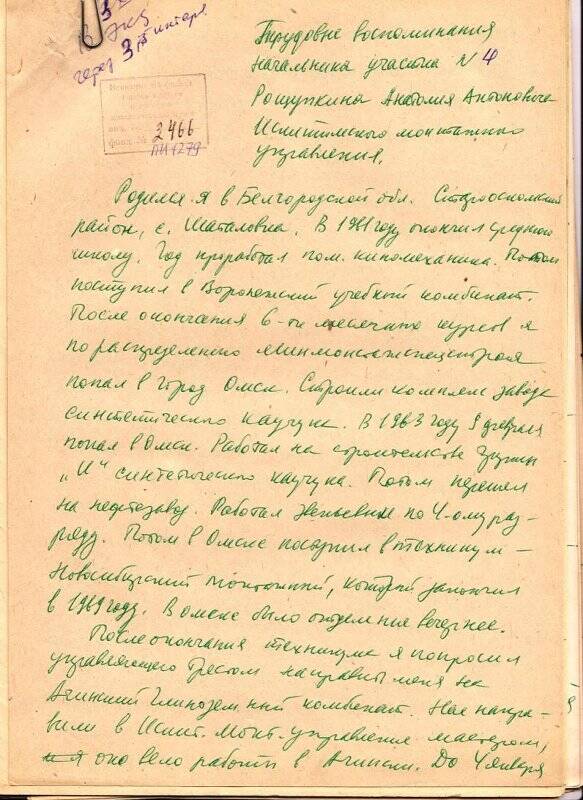 В 3
ЭКЗ
через 3 интервала
2466
ПИ 1279
Трудовые воспоминания
начальника участка N 4
Рощупкина Анатолия Антоновича
Искитимского монтажного
управления.
Родился я в Белгородской обл. Старооскольский
район, с. Шаталовка. В 1961 году окончил среднюю
школу. Год проработал пом. киномеханика. Потом
поступил в Воронежский учебный комбинат.
После окончания 6-ти месячных курсов я
по распределению минмонтажспецстроя
попал в город Омск. Строили комплекс завода
синтетического каучука. В 1963 году 9 февраля
попал в Омск. Работал на строительстве
„И" синтетического каучука. Потом перешел
на нефтезавод. Работал звеньевым по 4-ому раз-
ряду. Потом в Омске поступил в техникум –
Новосибирский монтажный, который закончил
в 1969 году. В Омске было отделение вечернее.
После окончания техникума я попросил
управляющего трестом направить меня на
Ачинский глиноземный комбинат. Нас напра-
вили в монт. управление мастером,
оно вело работы в Ачинске. До 4 января